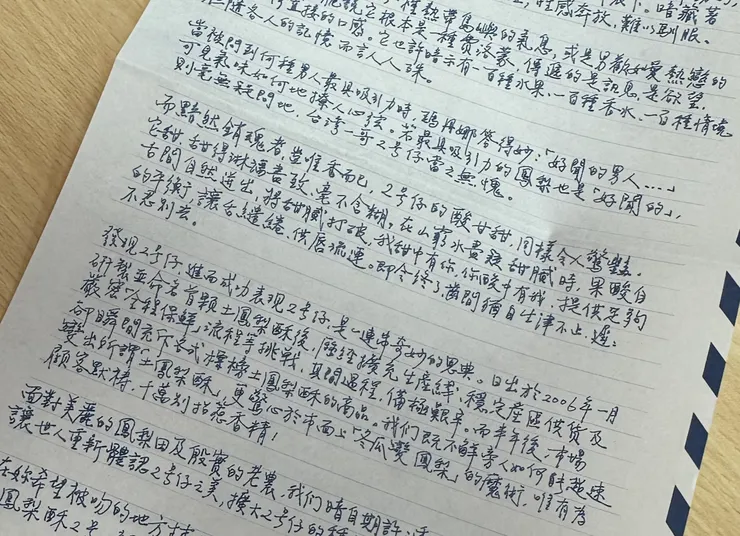 性感奔放,難以馴服。
種熱帶島嶼的氣息,或是男歡女愛熱戀的
直接的口感。它根本是一種費洛蒙,傳遞的是訊息,是慾望。
隨各人的記憶而言人人殊。它也許暗示有一百種水果、一百種香水、一百種情境
當被問到何種男人最具吸引力時,
可見氣味如何地撩人心弦。若最具吸引力的鳳梨也是「好聞的」,
則毫無疑問地,台灣一哥2号仔當之無愧。
而黯然銷魂者,豈惟香而已,2号仔的酸甘甜,同樣令人驚豔。
它甜,甜得淋漓盡致,毫不含糊。在山窮水盡疑甜膩時,果酸自
舌間自然迸出,將甜膩打破。我甜中有你,你酸中有我,提供足夠
的平衡,讓舌繾綣,供唇流連。即令終了,齒間猶自生津不止,遲
不忍別去。
發現2号仔,進而成功表現2号仔,是一連串奇妙的恩典。日出於2006年一月
研製並命名首顆土鳳梨酥後,歷經擴充生產線,穩定產區供貨及
嚴密「全程保鮮」流程等挑戰,其間過程,備極艱辛。而半年後,市場
卻瞬間充斥各式標榜土鳳梨酥的商品。我們既不解旁人如何能超速
變出所謂「土鳳梨酥」,更驚心於市面上「冬瓜變鳳梨」的魔術,唯有為
顧客默禱,千萬別掐惹香精!
面對美麗的鳳梨田及殷實的老農,我們暗自期許:
讓世人重新體認2号仔之美,擴大2号仔的種
在妳希望被吻的地方
鳳梨酥2号